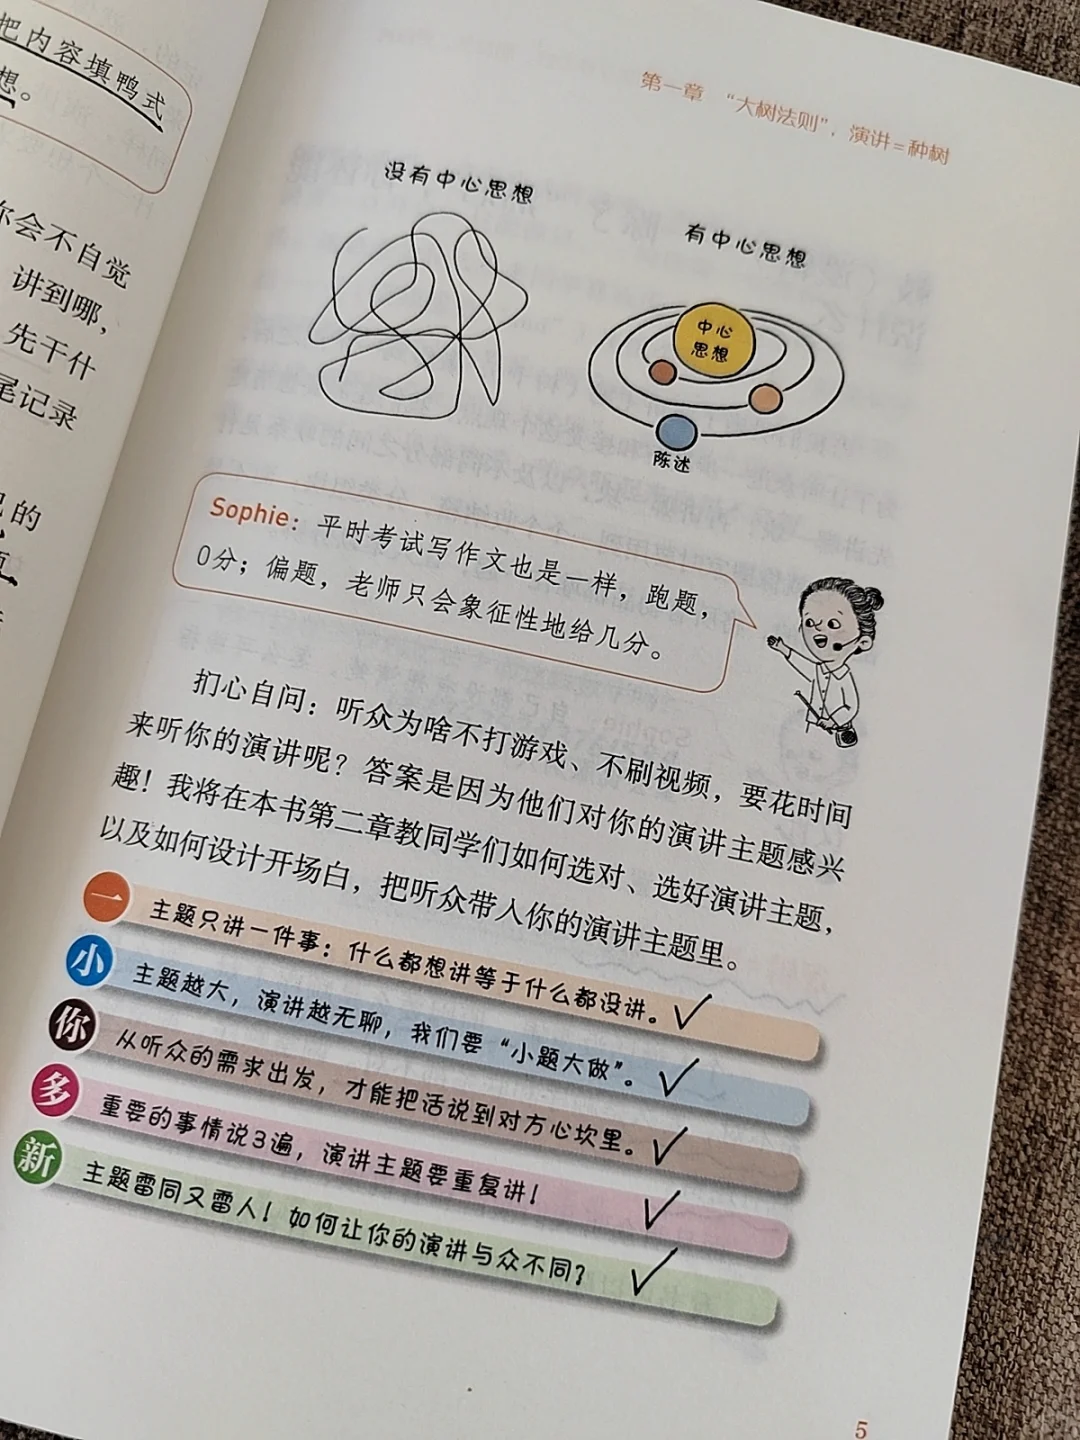 把内容填鸭式
想。
你会不自觉
讲到哪，
先干什
尾记录
己的
第一章 “大树法则”，演讲=种树
没有中心思想
有中心思想
中心
思想
陈述
Sophie：平时考试写作文也是一样，跑题，
0分；偏题，老师只会象征性地给几分。
扪心自问：听众为啥不打游戏、不刷视频，要花时间
来听你的演讲呢？答案是因为他们对你的演讲主题感兴
趣！我将在本书第二章教同学们如何选对、选好演讲主题，
以及如何设计开场白，把听众带入你的演讲主题里。
一 主题只讲一件事：什么都想讲等于什么都没讲。
小 主题越大，演讲越无聊，我们要“小题大做”。
你 从听众的需求出发，才能把话说到对方心坎里。
多 重要的事情说3遍，演讲主题要重复讲！
新 主题雷同又雷人！如何让你的演讲与众不同？
5